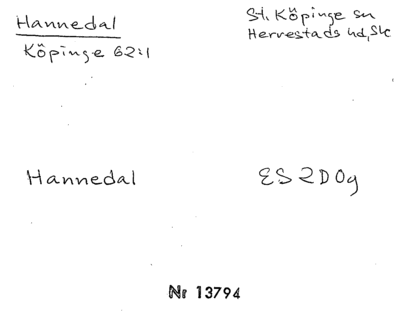 Hannedal
Köpinge 62:1
St. Köpinge sn
Herrestads hd, Sk
Hannedal
ES2D0g
Nr 13794